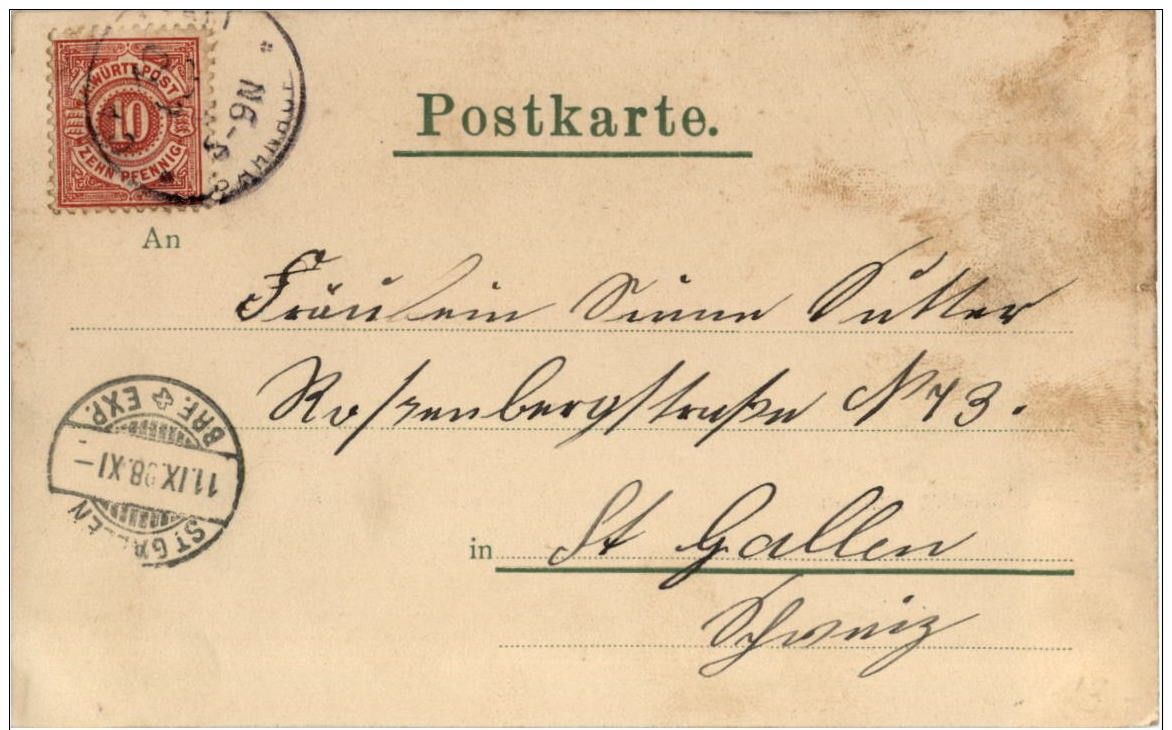 K. WÜRTT. POST
10
ZEHN PFENNIG
N 6-
Postkarte.
An
Fräulein Sutter
Rosenbergstraße N 73.
BRF. EXP.
11.IX.98.XI-
ST. GALLEN
in St Gallen
Schweiz